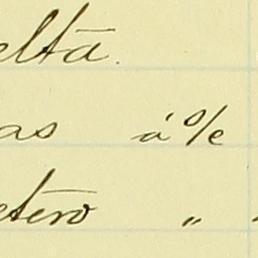 eltā.
as á %
etero "